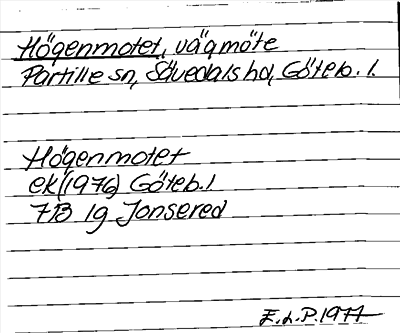 Högenmotet, vägmöte
Partille sn, Sävedals hd, Göteb. l.
Högenmotet
ek (1976) Göteb. l
7B 1g Jonsered
E.L.P. 1977